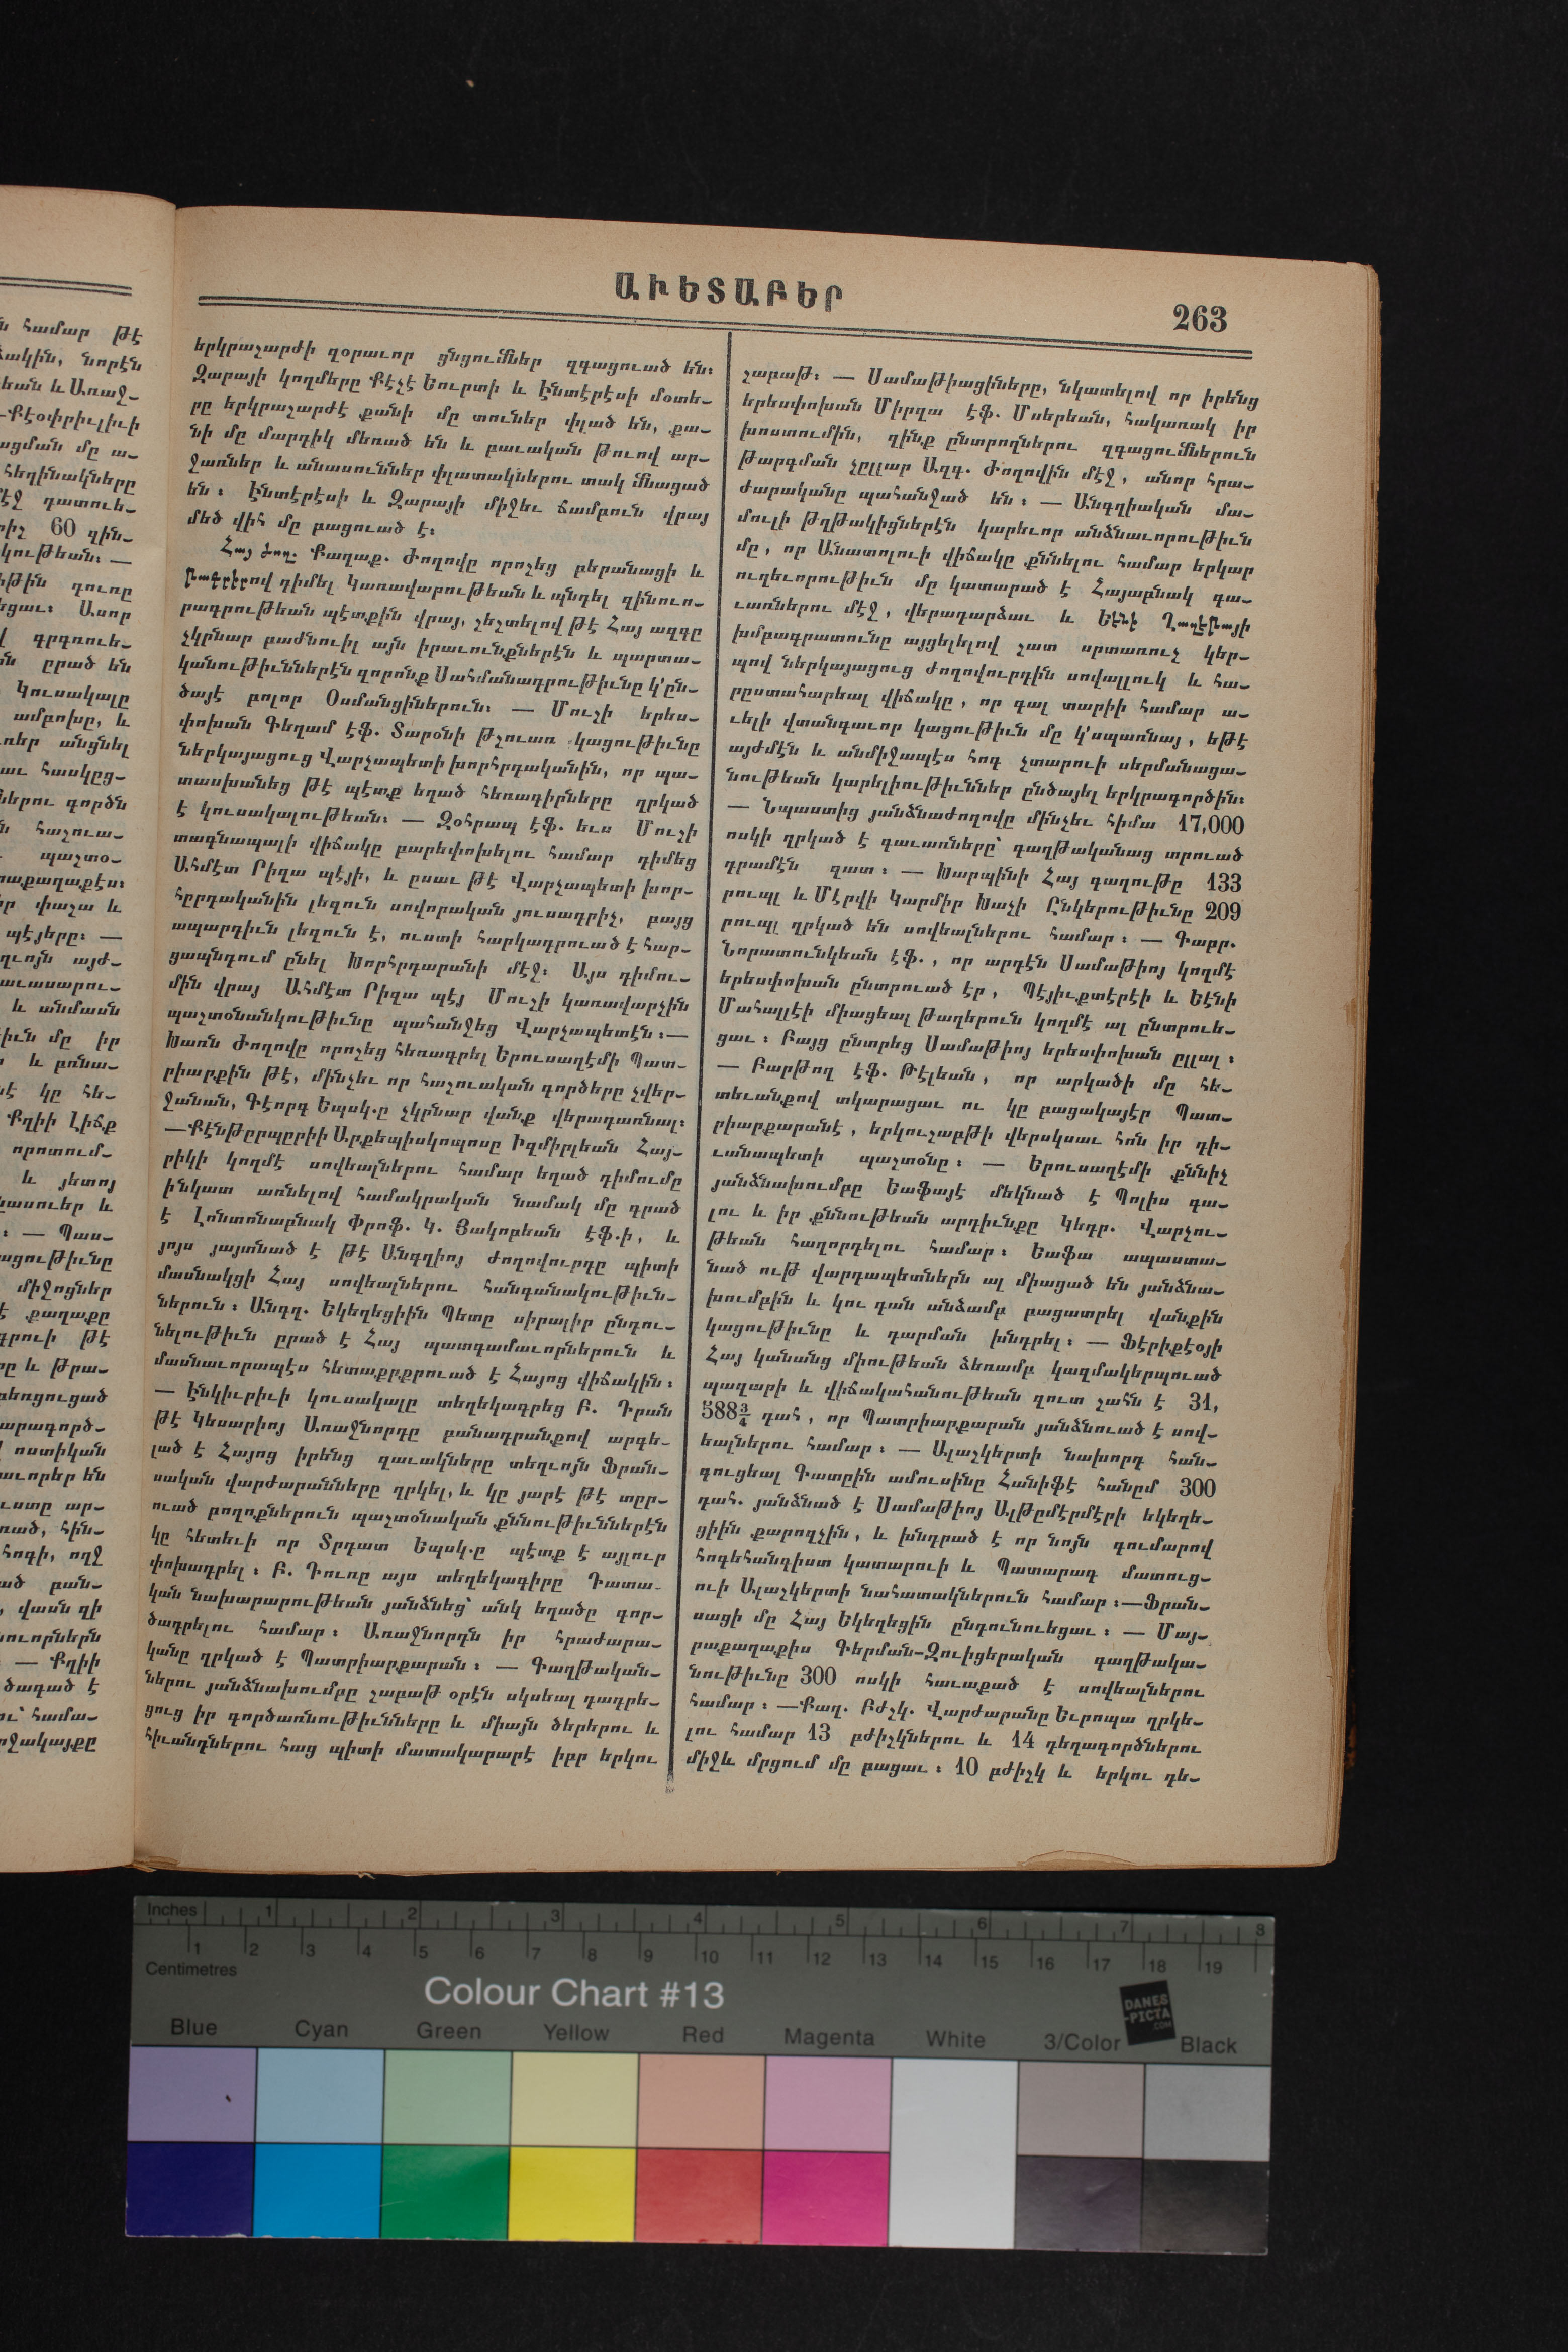 ԱՒԵՏԱԲԵՐ
263
ն համար թէ
ճակին, նորէն
եան և Առաջ—
—Քէօփրիւլիւի
ացման մը ա—
հեղինակները
էջ դատուե—
րիչ 60 զին—
կութեան։ —
իթին դուռը
եցաւ։ Ասոր
վ գրգռուե—
ն ըրած են
Կուսակալը
ամբոխը, և
ռեր անցնել
աւ հասկըց—
ներու գործն
ն հաշուա—
պաշտօ—
րաքաղաքէս։
իր փաշա և
պէյերը։ —
ղւոյն այժ—
աւասարու—
և անմասն
իւն մը իր
և բռնա—
է կը հե—
Քղիի Լիճք
որոտում—
և յետոյ
նասուեր և
։ — Պաս—
ացութիւնը
միջոցներ
է քաղաքը
գրուի թէ
րը և թրա—
տեռցուցած
արագործ—
ոստիկան
աւորեր են
ւստը ար—
ռած, հին—
հոգի, ողջ
ած բան—
, վասն զի
նուորներն
— Քղիի
ծագած է
ու՝ համա—
րջակայքը
երկրաշարժի զօրաւոր ցնցումներ զգացուած են։
Զարայի կողմերը Քէչէ Եուրտի և Էնտէրէսի մօտե—
րը երկրաշարժէ քանի մը տուներ փլած են, քա—
նի մը մարդիկ մեռած են և բաւական թուով ար—
ջառներ և անասուններ փլատակներու տակ մնացած
են։ Էնտէրէսի և Զարայի միջեւ ճամբուն վրայ
մեծ վիհ մը բացուած է։
Հայ ժող. Քաղաք. Ժողովը որոշեց բերանացի և
թագրիրով դիմել Կառավարութեան և պնդել զինուո—
րագրութեան պէտքին վրայ, շեշտելով թէ Հայ ազգը
չկրնար բաժնուիլ այն իրաւունքներէն և պարտա—
կանութիւններէն զորոնք Սահմանադրութիւնը կ՚ըն—
ծայէ բոլոր Օսմանցիներուն։ — Մուշի երես—
փոխան Գեղամ էֆ. Տարօնի թշուառ կացութիւնը
ներկայացուց Վարչապետի խորհրդականին, որ պա—
տասխանեց թէ պէտք եղած հեռագիրները ղրկած
է կուսակալութեան։ — Զօհրապ էֆ. եւս Մուշի
տագնապալի վիճակը բարեփոխելու համար դիմեց
Ահմէտ Րիզա պէյի, և ըսաւ թէ Վարչապետի խոր—
հըրդականին լեզուն սովորական յուսադրիչ, բայց
ապարդիւն լեզուն է, ուստի հարկադրուած է հար—
ցապնդում ընել Խորհրդարանի մէջ։ Այս դիմու—
մին վրայ Ահմէտ Րիզա պէյ Մուշի կառավարչին
պաշտօնանկութիւնը պահանջեց Վարչապետէն։—
Խառն Ժողովը որոշեց հեռագրել Երուսաղէմի Պատ—
րիարքին թէ, մինչեւ որ հաշուական գործերը չվեր—
ջանան, Գէորգ Եպսկ.ը չկրնար վանք վերադառնալ։
—Քէնթըրպըրիի Արքեպիսկոպոսը Իզմիրլեան Հայ—
րիկի կողմէ սովեալներու համար եղած դիմումը
ինկատ առնելով համակրական նամակ մը գրած
է Լոնտոնաբնակ Փրոֆ. Կ. Յակոբեան էֆ.ի, և
յոյս յայտնած է թէ Անգղիոյ ժողովուրդը պիտի
մասնակցի Հայ սովեալներու հանգանակութիւն—
ներուն։ Անգղ. Եկեղեցիին Պետը սիրալիր ընդու—
նելութիւն ըրած է Հայ պատգամաւորներուն և
մասնաւորապէս հետաքրքրուած է Հայոց վիճակին։
— Էնկիւրիւի կուսակալը տեղեկագրեց Բ. Դրան
թէ Կեսարիոյ Առաջնորդը բանադրանքով արգե—
լած է Հայոց իրենց զաւակները տեղւոյն Ֆրան—
սական վարժարանները ղրկել, և կը յարէ թէ տըր—
ուած բողոքներուն պաշտօնական քննութիւններէն
կը հետեւի որ Տրդատ Եպսկ.ը պէտք է այլուր
փոխադրել։ Բ. Դուռը այս տեղեկագիրը Դատա—
կան նախարարութեան յանձնեց՝ անկ եղածը գոր—
ծադրելու համար։ Առաջնորդն իր հրաժարա—
կանը ղրկած է Պատրիարքարան։ — Գաղթական—
ներու յանձնախումբը շաբաթ օրէն սկսեալ դադրե—
ցուց իր գործառնութիւնները և միայն ծերերու և
հիւանդներու հաց պիտի մատակարարէ իբր երկու
շաբաթ։ — Սամաթիացիները, նկատելով որ իրենց
երեսփոխան Միրզա էֆ. Մսերեան, հակառակ իր
խոստումին, զինք ընտրողներու զգացումներուն
թարգման չըլլար Ազգ. Ժողովին մէջ, անոր հրա—
ժարականը պահանջած են։ — Անգղիական մա—
մուլի թղթակիցներէն կարեւոր անձնաւորութիւն
մը, որ Անատոլուի վիճակը քննելու համար երկար
ուղեւորութիւն մը կատարած է Հայաբնակ գա—
ւառներու մէջ, վերադարձաւ և Եէնի Ղազէթայի
խմբագրատունը այցելելով շատ սրտառուչ կեր—
պով ներկայացուց ժողովուրդին սովալլուկ և հա—
րըստահարեալ վիճակը, որ գալ տարիի համար ա—
ւելի վտանգաւոր կացութիւն մը կ՚սպառնայ, եթէ
այժմէն և անմիջապէս հոգ չտարուի սերմանացա—
նութեան կարելիութիւններ ընծայել երկրագործին։
— Նպաստից յանձնաժողովը մինչեւ հիմա 17,000
ոսկի ղրկած է գաւառները՝ գաղթականաց տրուած
դրամէն զատ։ — Խարպինի Հայ գաղութը 133
րուպլ և Մէրվի Կարմիր Խաչի Ընկերութիւնը 209
րուպլ ղրկած են սովեալներու համար։ — Գաբր.
Նորատունկեան էֆ., որ արդէն Սամաթիոյ կողմէ
երեսփոխան ընտրուած էր, Պէյիւքտէրէի և Եէնի
Մահալլէի միացեալ թաղերուն կողմէ ալ ընտրուե—
ցաւ։ Բայց ընտրեց Սամաթիոյ երեսփոխան ըլլալ։
— Բարթող էֆ. Թէլեան, որ արկածի մը հե—
տեւանքով տկարացաւ ու կը բացակայէր Պատ—
րիարքարանէ, երկուշաբթի վերսկսաւ հոն իր դի—
ւանապետի պաշտօնը։ — Երուսաղէմի քննիչ
յանձնախումբը Եաֆայէ մեկնած է Պոլիս գա—
լու և իր քննութեան արդիւնքը Կեդր. Վարչու—
թեան հաղորդելու համար։ Եաֆա ապաստա—
նած ութ վարդապետներն ալ միացած են յանձնա—
խումբին և կու գան անձամբ բացատրել վանքին
կացութիւնը և դարման խնդրել։ — Ֆէրիքէօյի
Հայ կանանց միութեան ձեռամբ կազմակերպուած
պազարի և վիճակահանութեան զուտ շահն է 31,
588¾ դահ, որ Պատրիարքարան յանձնուած է սով—
եալներու համար։ — Ալաշկերտի նախորդ հան—
գուցեալ Գատըին ամուսինը Հանիֆէ հանըմ 300
դահ. յանձնած է Սամաթիոյ Ալթըմէրմէրի եկեղե—
ցիին քարոզչին, և խնդրած է որ նոյն գումարով
հոգեհանգիստ կատարուի և Պատարագ մատուց—
ուի Ալաշկերտի նահատակներուն համար։—Ֆրան—
սացի մը Հայ Եկեղեցին ընդունուեցաւ։ — Մայ—
րաքաղաքիս Գերման-Զուիցերական գաղթակա—
նութիւնը 300 ոսկի հաւաքած է սովեալներու
համար։ —Քաղ. Բժշկ. Վարժարանը Եւրոպա ղրկե—
լու համար 13 բժիշկներու և 14 դեղագործներու
միջև մրցում մը բացաւ։ 10 բժիշկ և երկու դե—
Inches 1 2 3 4 5 6 7 8
1 2 3 4 5 6 7 8 9 10 11 12 13 14 15 16 17 18 19
Centimetres
Colour Chart #13
DANES
-PICTA
.COM
Blue Cyan Green Yellow Red Magenta White 3/Color Black